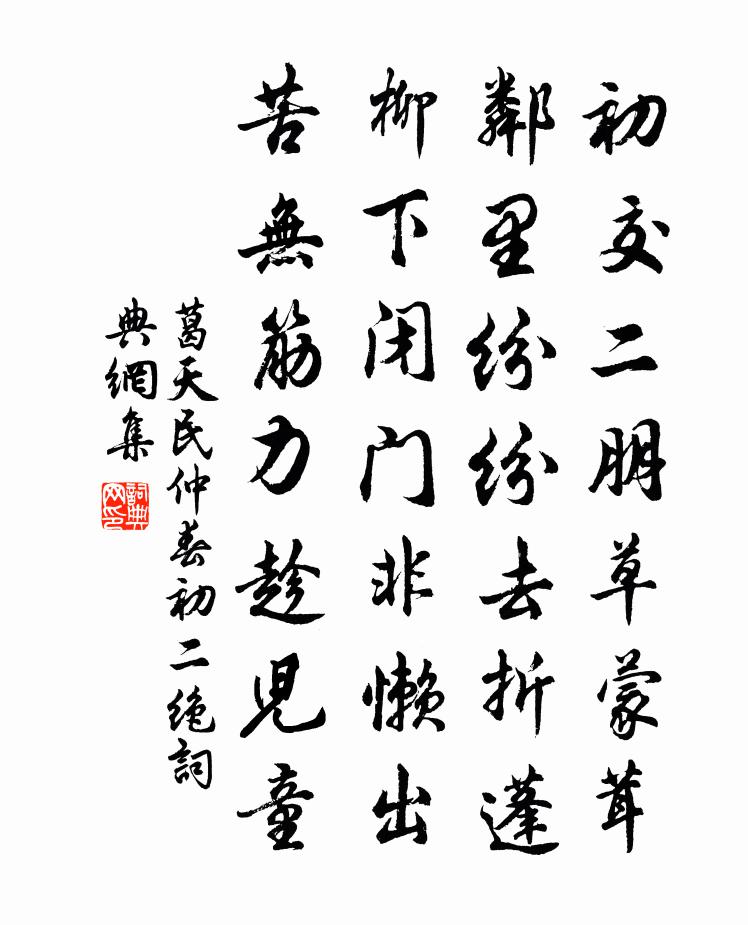 初交二朋草蒙茸
鄰里纷纷去折蓬
柳下闭门非懒出
苦無筋力趁児童
葛天民仲春初二绝詞
典網集
詞典网印